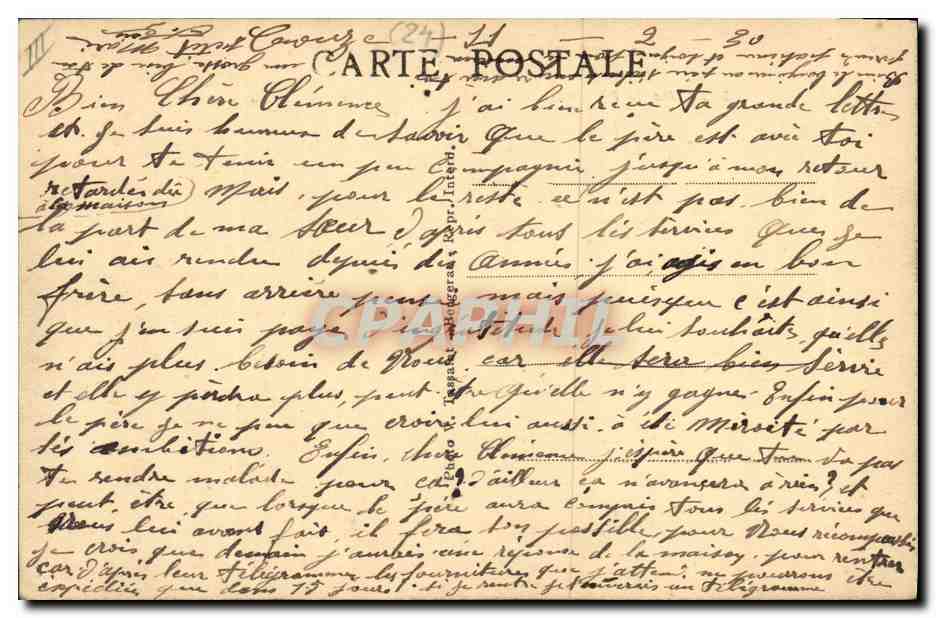 III
(24)
Couze 11 - 2 - 30
CARTE POSTALE
Bien Chère Clémence, j'ai bien reçu ta grande lettre
et je suis heureux de savoir que le père est avec toi
pour te tenir un peu compagnie jusqu'à mon retour
retardés du à la maison) Mais, pour le reste ce n'est pas bien de
la part de ma sœur d'après tous les services que je
lui ais rendu depuis des années, j'ai agis en bon
frère, sans arrière pensée mais puisque c'est ainsi
que j'en suis payé je lui souhaite qu'elle
n'ais plus besoin de Nous, car elle sera bien servie
et elle y perdra plus, peut-être qu'elle n'y gagne. Enfin pour
le père je ne peu que croire lui aussi à été miroité par
ses ambitions. Enfin, chère Clémence j'espère que tu va pas
te rendre malade pour ca, d'ailleur ça n'avancera à rien, et
peut-être que lorsque le père aura compris tous les services que
Nous lui avont fait, il fera son possible pour Nous récompenser
je crois que demain j'aurais une réponse de la maison, pour rentrer
car d'après leur télégramme les fournitures que j'attend ne pourrons être
expédiées que dans 15 jours. Si je rentre je t'enverrais un télégramme
Photo Tassalat - Bergerac. Repr. Interd.
CPAPHIL